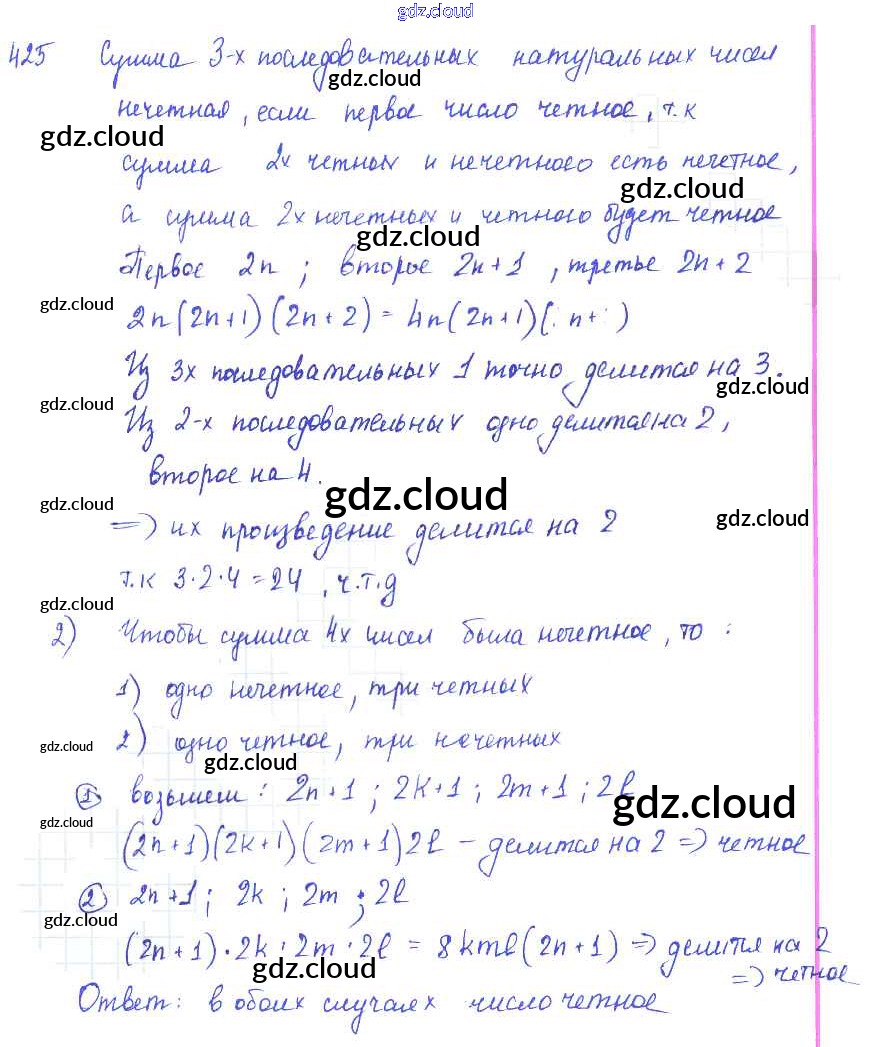 gdz.cloud
425 Сумма 3-х последовательных натуральных чисел
gdz.cloud
нечетная, если первое число четное, т.к
gdz.cloud
сумма 2х четных и нечетного есть нечетное,
gdz.cloud
а сумма 2х нечетных и четного будет четное
gdz.cloud
Первое 2n ; второе 2n+1 , третье 2n+2
gdz.cloud
2n(2n+1)(2n+2) = 4n(2n+1)( n+ )
Из 3х последовательных 1 точно делится на 3.
gdz.cloud
gdz.cloud
Из 2-х последовательных одно делится на 2,
второе на 4.
gdz.cloud
gdz.cloud
gdz.cloud
=> их произведение делится на 2
т.к 3·2·4=24 , ч.т.д
gdz.cloud
2) Чтобы сумма 4х чисел была нечетное, то :
1) одно нечетное, три четных
2) одно четное, три нечетных
gdz.cloud
gdz.cloud
① возьмем : 2n+1 ; 2k+1 ; 2m+1 ; 2l
gdz.cloud
gdz.cloud
(2n+1)(2k+1)(2m+1)2l – делится на 2 => четное
② 2n+1 ; 2k ; 2m ; 2l
gdz.cloud
(2n+1)·2k·2m·2l = 8kml(2n+1) => делится на 2
gdz.cloud
=> четное
Ответ: в обоих случаях число четное